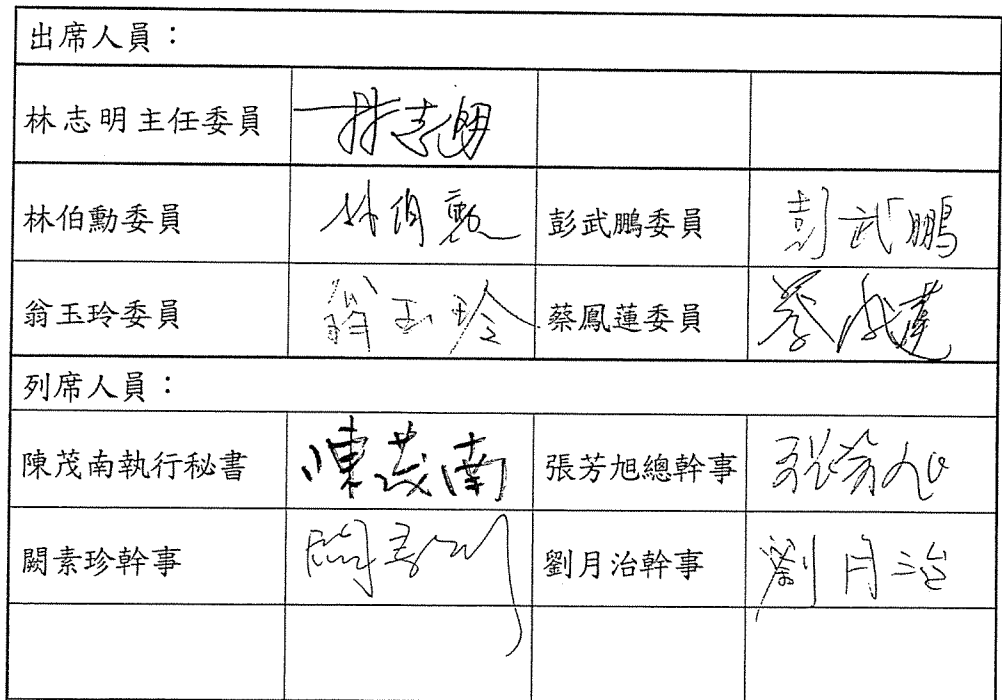 出席人員：
林志明主任委員 林志明
林伯勳委員 林伯勳 彭武鵬委員 彭武鵬
翁玉玲委員 翁玉玲 蔡鳳蓮委員 蔡鳳蓮
列席人員：
陳茂南執行秘書 陳茂南 張芳旭總幹事 張芳旭
闕素珍幹事 闕素珍 劉月治幹事 劉月治